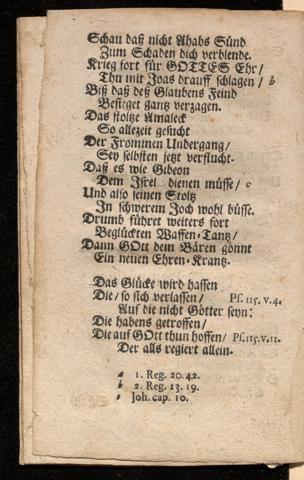 Schau daß nicht Ahabs Sünd
Zum Schaden dich verblende.
Krieg fort für GOTTES Ehr/
Thu mit Joas drauff schlagen/ b
Biß daß deß Glaubens Feind
Besieget gantz verzagen.
Das stoltze Amaleck
So allezeit gesucht
Der Frommen Undergang/
Sey selbsten jetzt verflucht.
Daß es wie Gibeon
Dem Jsrel dienen müsse/ c
Und also seinen Stoltz
In schwerem Joch wohl büsse.
Drumb führet weiters fort
Beglückten Waffen-Tantz/
Dann GOtt dem Bären gönnt
Ein neuen Ehren-Krantz.
Das Glücke wird hassen
Die/ so sich verlassen/ Ps. 115. v. 4.
Auf die nicht Götter seyn:
Die habens getroffen/
Die auf GOtt thun hoffen/ Ps. 115. v. 11.
Der alls regiert allein.
a 1. Reg. 20. 42.
b 2. Reg. 13. 19.
c Joh. cap. 10.